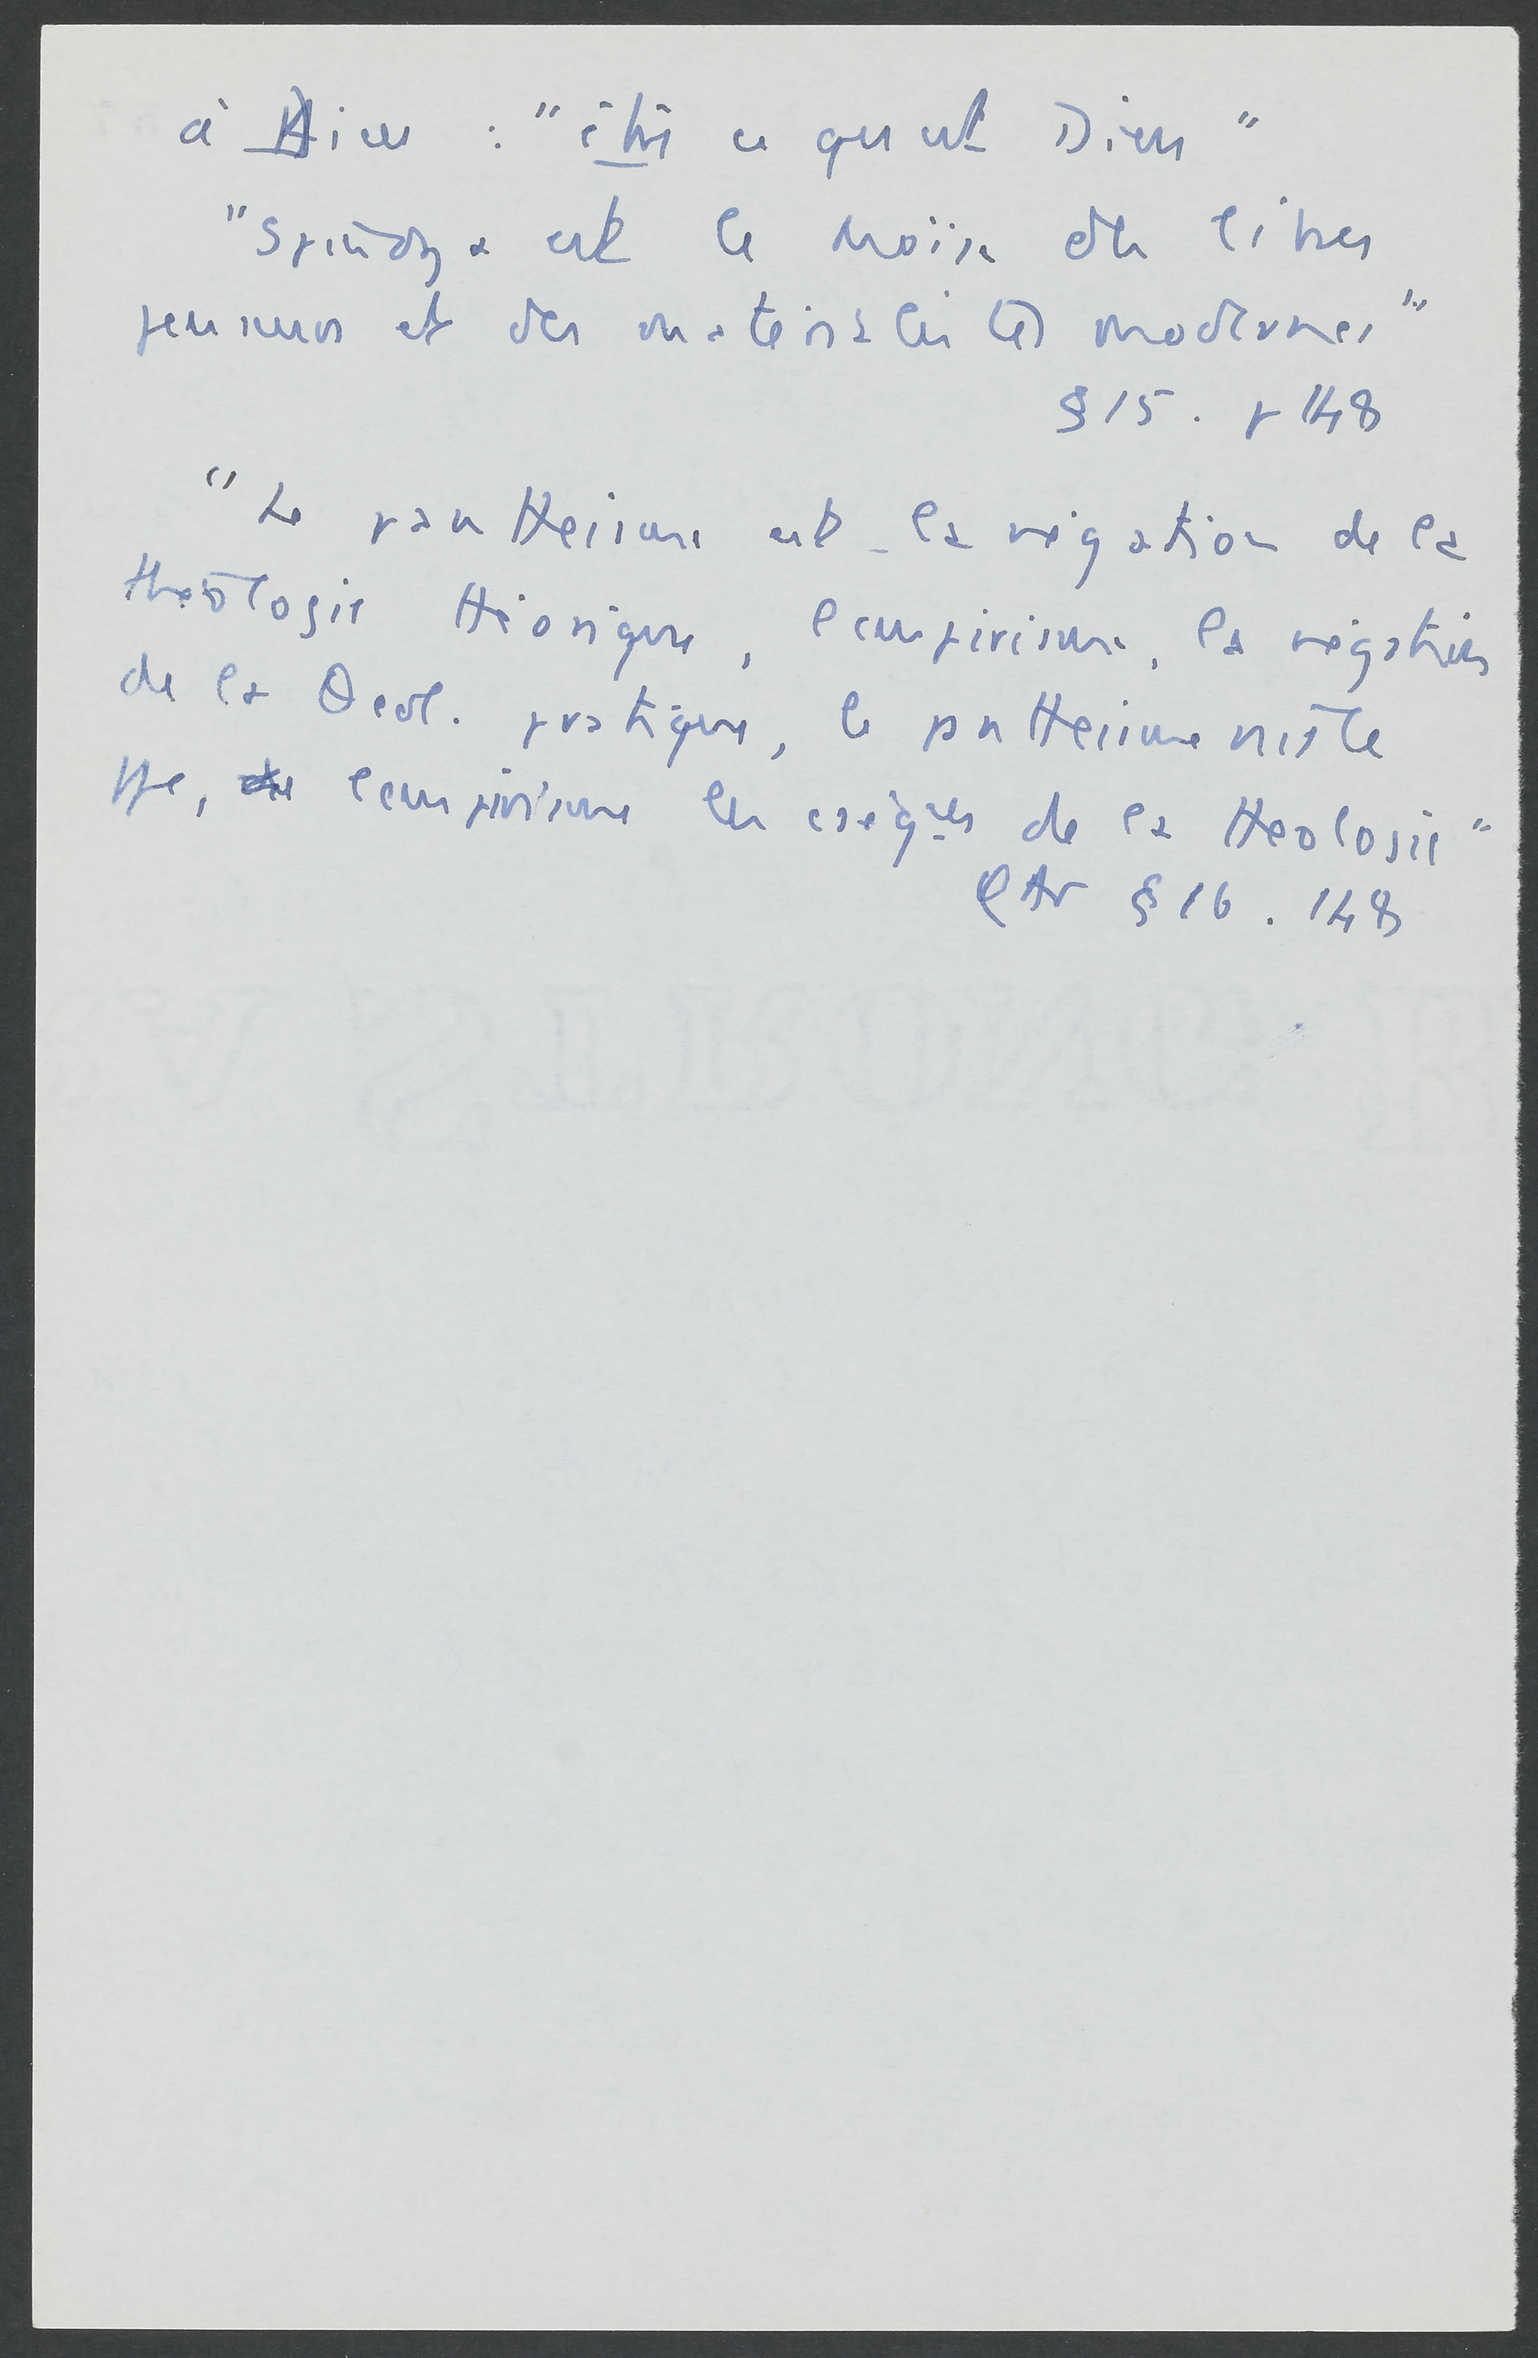 à Dieu : "être ce qu'est Dieu"
"Spinoza est le Moïse des libres
penseurs et des matérialistes modernes"
§ 15. p 148
"Le panthéisme est la négation de la
théologie théorique, l'empirisme, la négation
de la théol. pratique, le panthéisme nie le
ppe, l'empirisme les conséq.ces de la théologie"
§ 16. 148